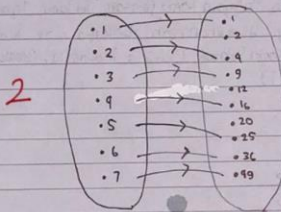 2
• 1
• 2
• 3
• 4
• 5
• 6
• 7
• 1
• 2
• 4
• 9
• 12
• 16
• 20
• 25
• 36
• 49